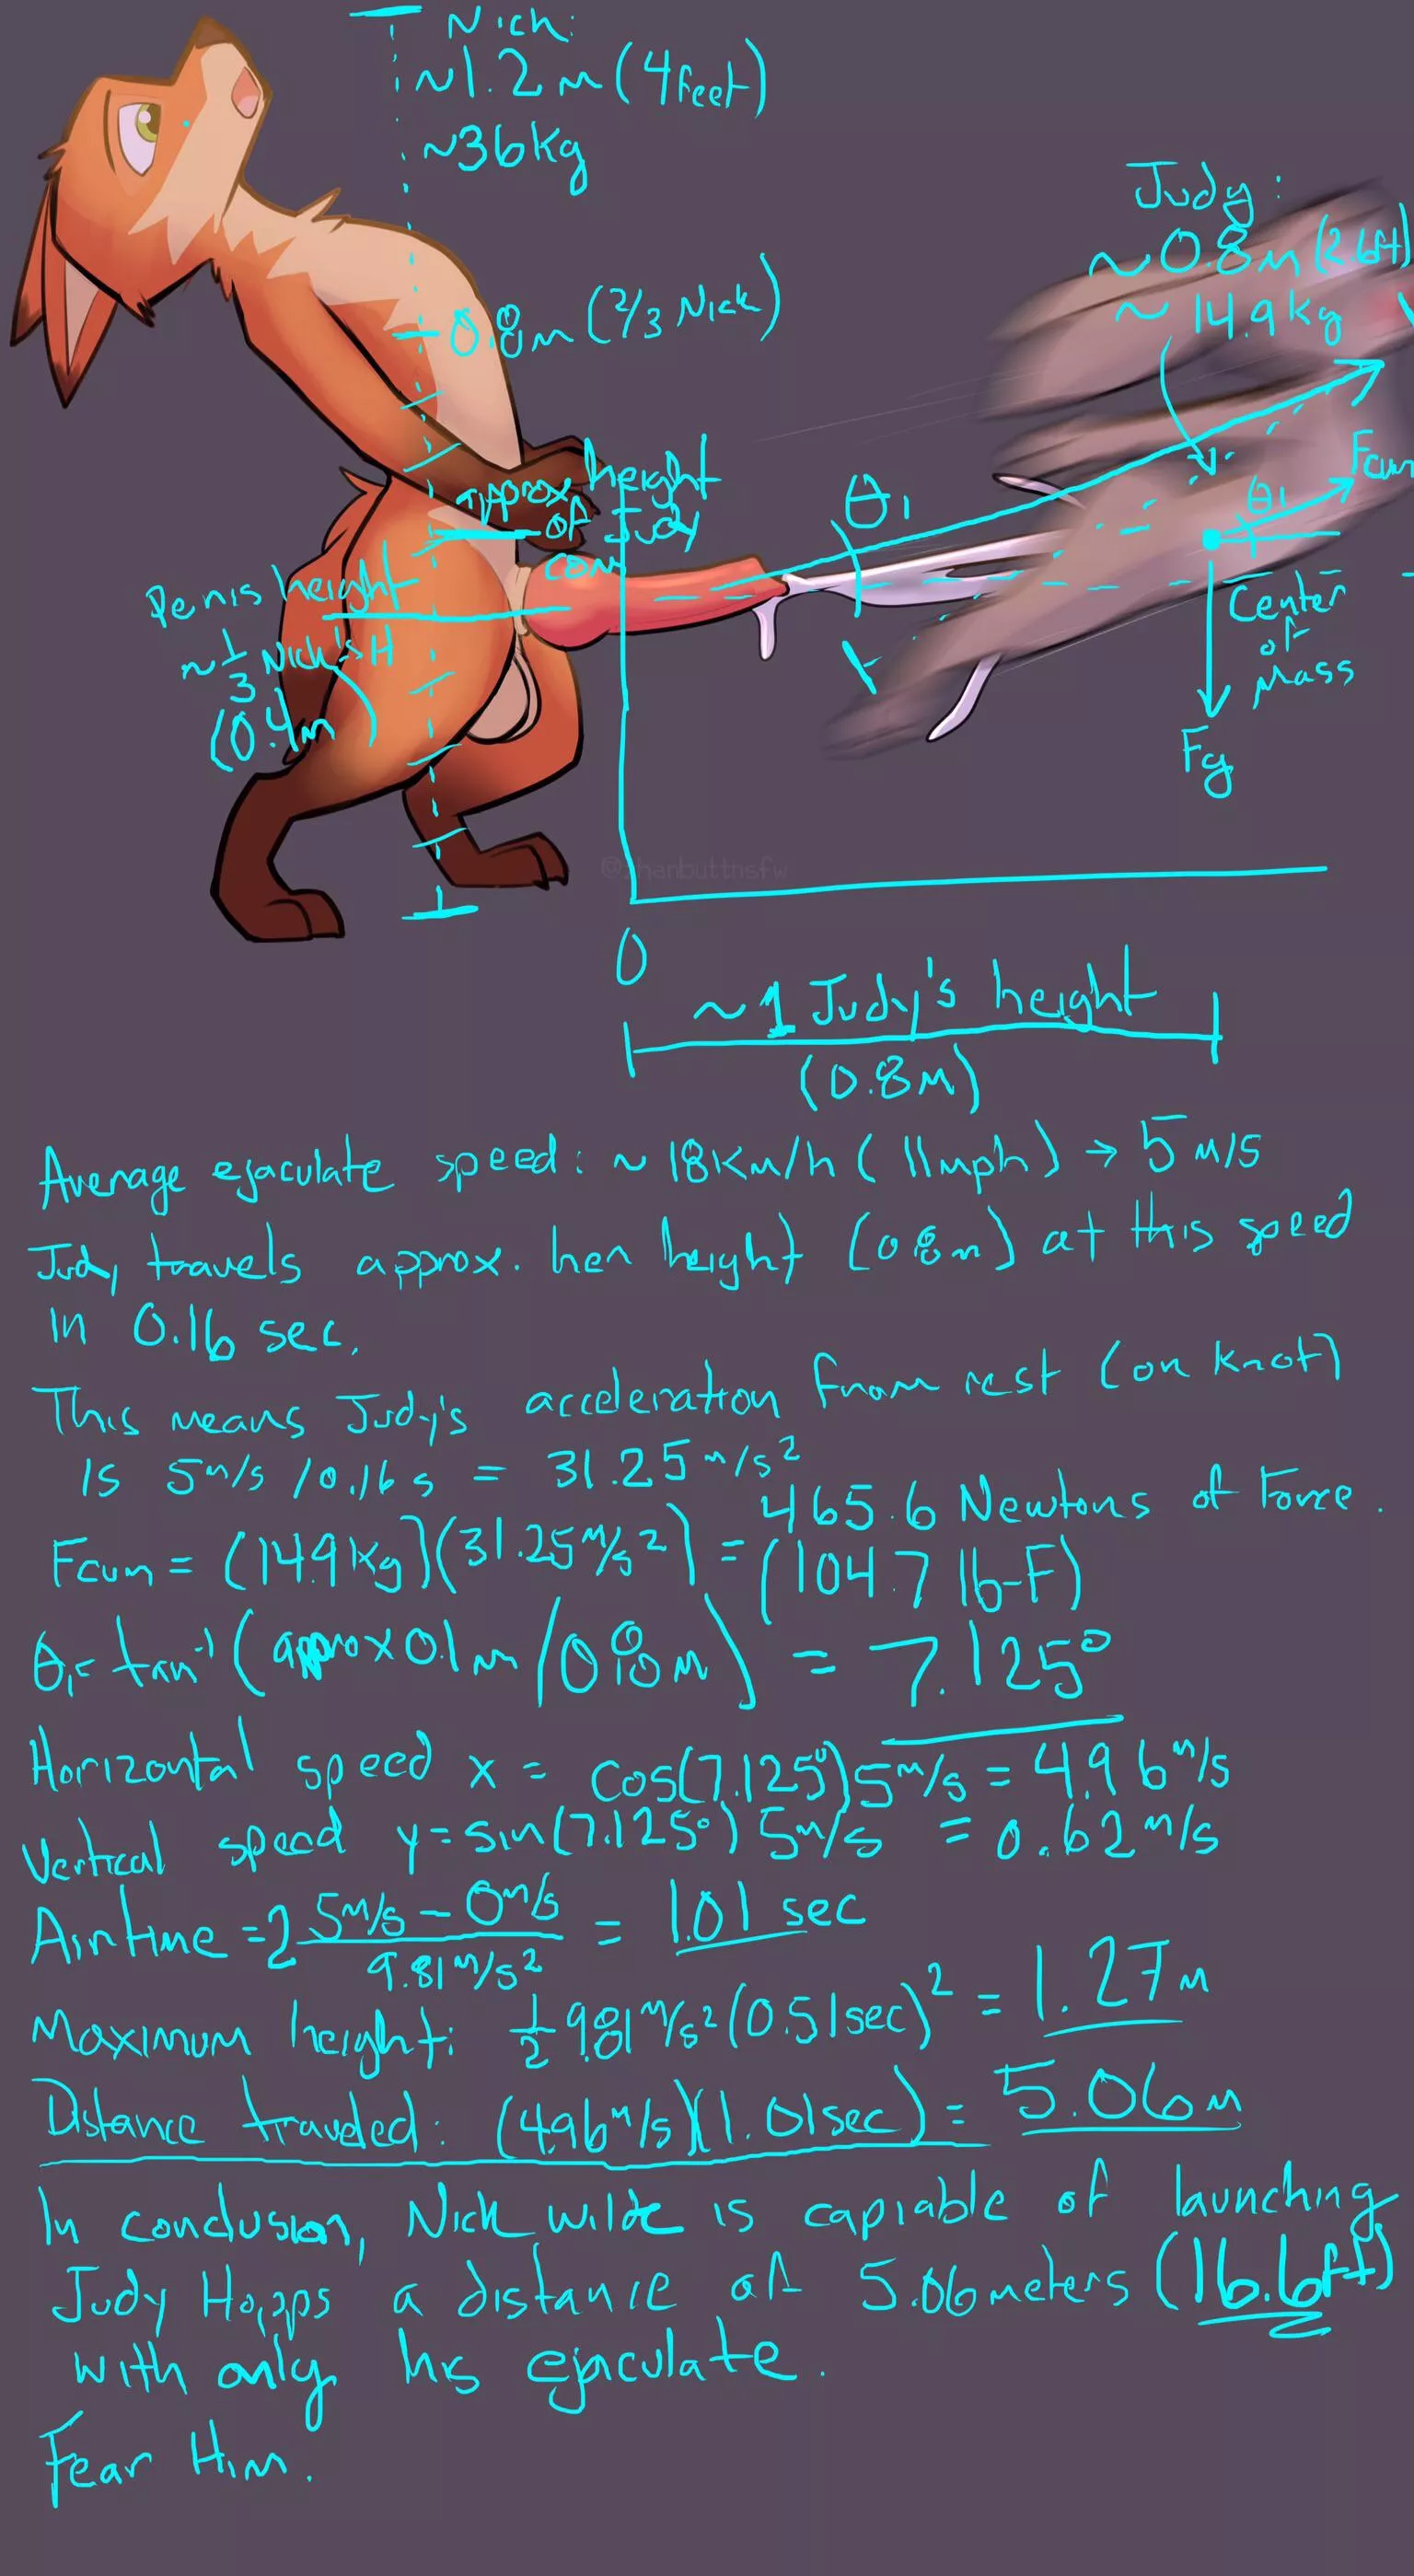 Nick:
~1.2m (4feet)
~36kg
Judy:
~0.8m (2.6ft)
~14.9kg
0.8m (2/3 Nick)
Fcum
θ1
θ1
approx. height
of Judy
com
Penis height
~1/3 Nick's H
(0.4m)
Center
of
Mass
Fg
0
~1 Judy's height
(0.8m)
Average ejaculate speed: ~18km/h (11mph) → 5 m/s
Judy travels approx. her height (0.8m) at this speed
in 0.16 sec.
This means Judy's acceleration from rest (on knot)
is 5m/s / 0.16s = 31.25 m/s²
Fcum = (14.9kg)(31.25m/s²) = 465.6 Newtons of Force.
(104.7 lb-F)
θ1 = tan⁻¹(approx 0.1m/0.8m) = 7.125°
Horizontal speed x = cos(7.125°)5m/s = 4.96m/s
Vertical speed y = sin(7.125°)5m/s = 0.62m/s
Airtime = 2 5m/s - 0m/s / 9.81m/s² = 1.01 sec
Maximum height: 1/2 9.81m/s²(0.51sec)² = 1.27m
Distance traveled: (4.96m/s)(1.01sec) = 5.06m
In conclusion, Nick Wilde is capiable of launching
Judy Hopps a distance of 5.06 meters (16.6ft)
with only his ejaculate.
Fear Him.